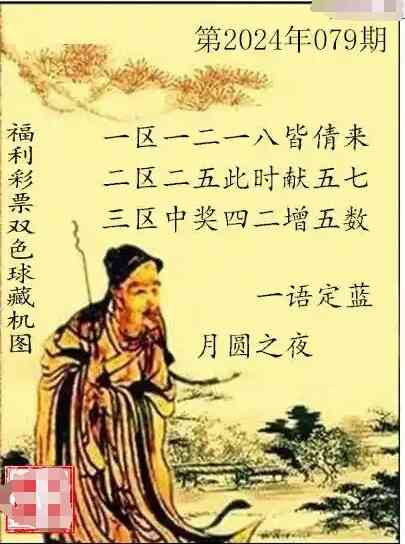 第2024年079期
福利彩票双色球藏机图
一区一二一八皆倩来
二区二五此时献五七
三区中奖四二增五数
一语定蓝
月圆之夜